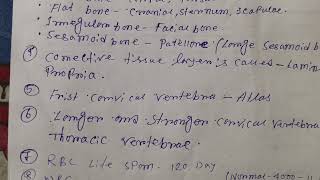 • Flat bone - Cranial, sternum, scapulae
• Irregular bone - Facial bone
• Sesamoid bone - Patellone (Longe Sesamoid b
④ Conective tissue layer is calles - Lamin
Propria.
⑤ Frist Cervical Vertebra - Atlas
⑥ Longer and Stronger cervical vertebra
Thoracic vertebrae.
⑦ RBC Life Spam - 120 Day
(Normal - 4000 - 11